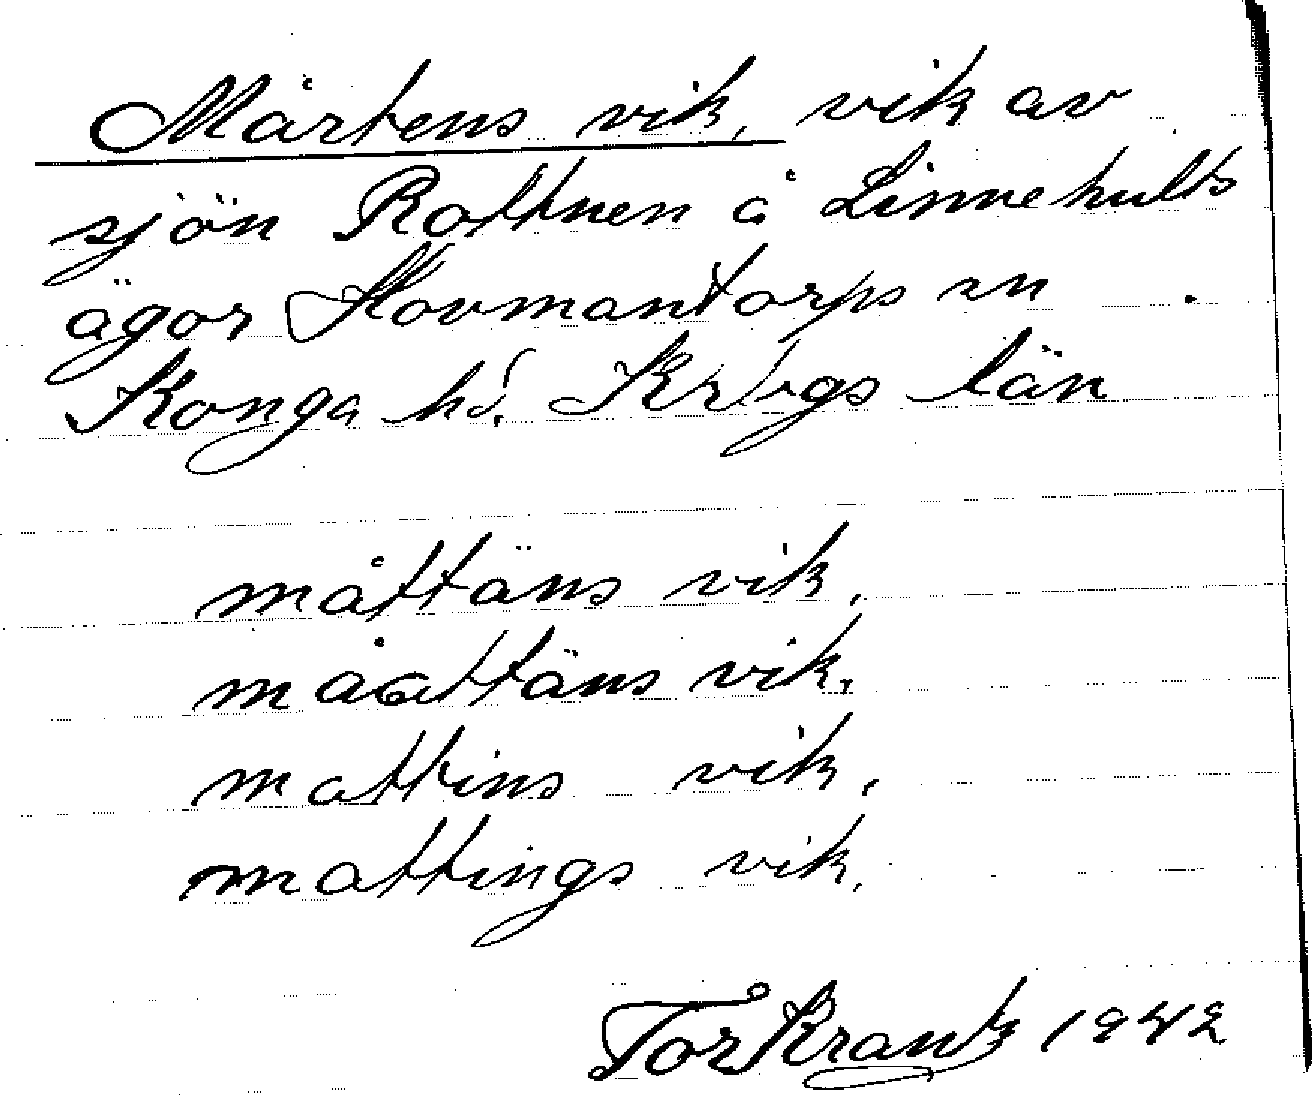 Mårtens vik, vik av
sjön Rottnen å Linnehults
ägor Hovmantorps sn
Konga hd. Krbgs län
måttäns vik,
måattäns vik,
mattins vik,
mattings vik,
Tor Krantz 1942